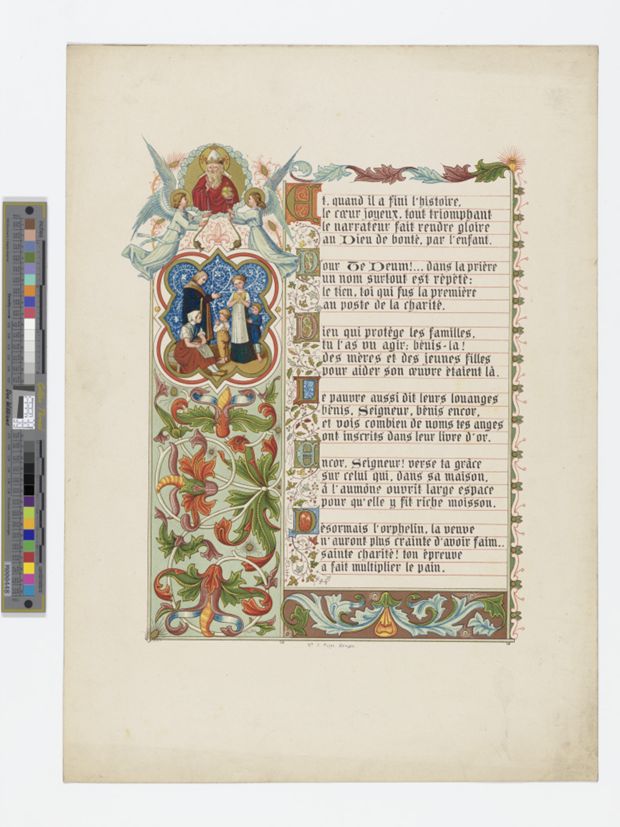 Et, quand il a fini l'histoire,
le cœur joyeux, tout triomphant
le narrateur fait rendre gloire
au Dieu de bonté, par l'enfant.
Pour Te Deum!... dans la prière
un nom surtout est répété:
le tien, toi qui fus la première
au poste de la charité.
Dieu qui protège les familles,
tu l'as vu agir; bénis-la!
des mères et des jeunes filles
pour aider son œuvre étaient là.
Le pauvre aussi dit leurs louanges
bénis, Seigneur, bénis encor,
et vois combien de noms tes anges
ont inscrits dans leur livre d'or.
Encor, Seigneur! verse ta grâce
sur celui qui, dans sa maison,
à l'aumône ouvrit large espace
pour qu'elle y fît riche moisson.
Désormais l'orphelin, la veuve
n'auront plus crainte d'avoir faim..
sainte charité! ton épreuve
a fait multiplier le pain.